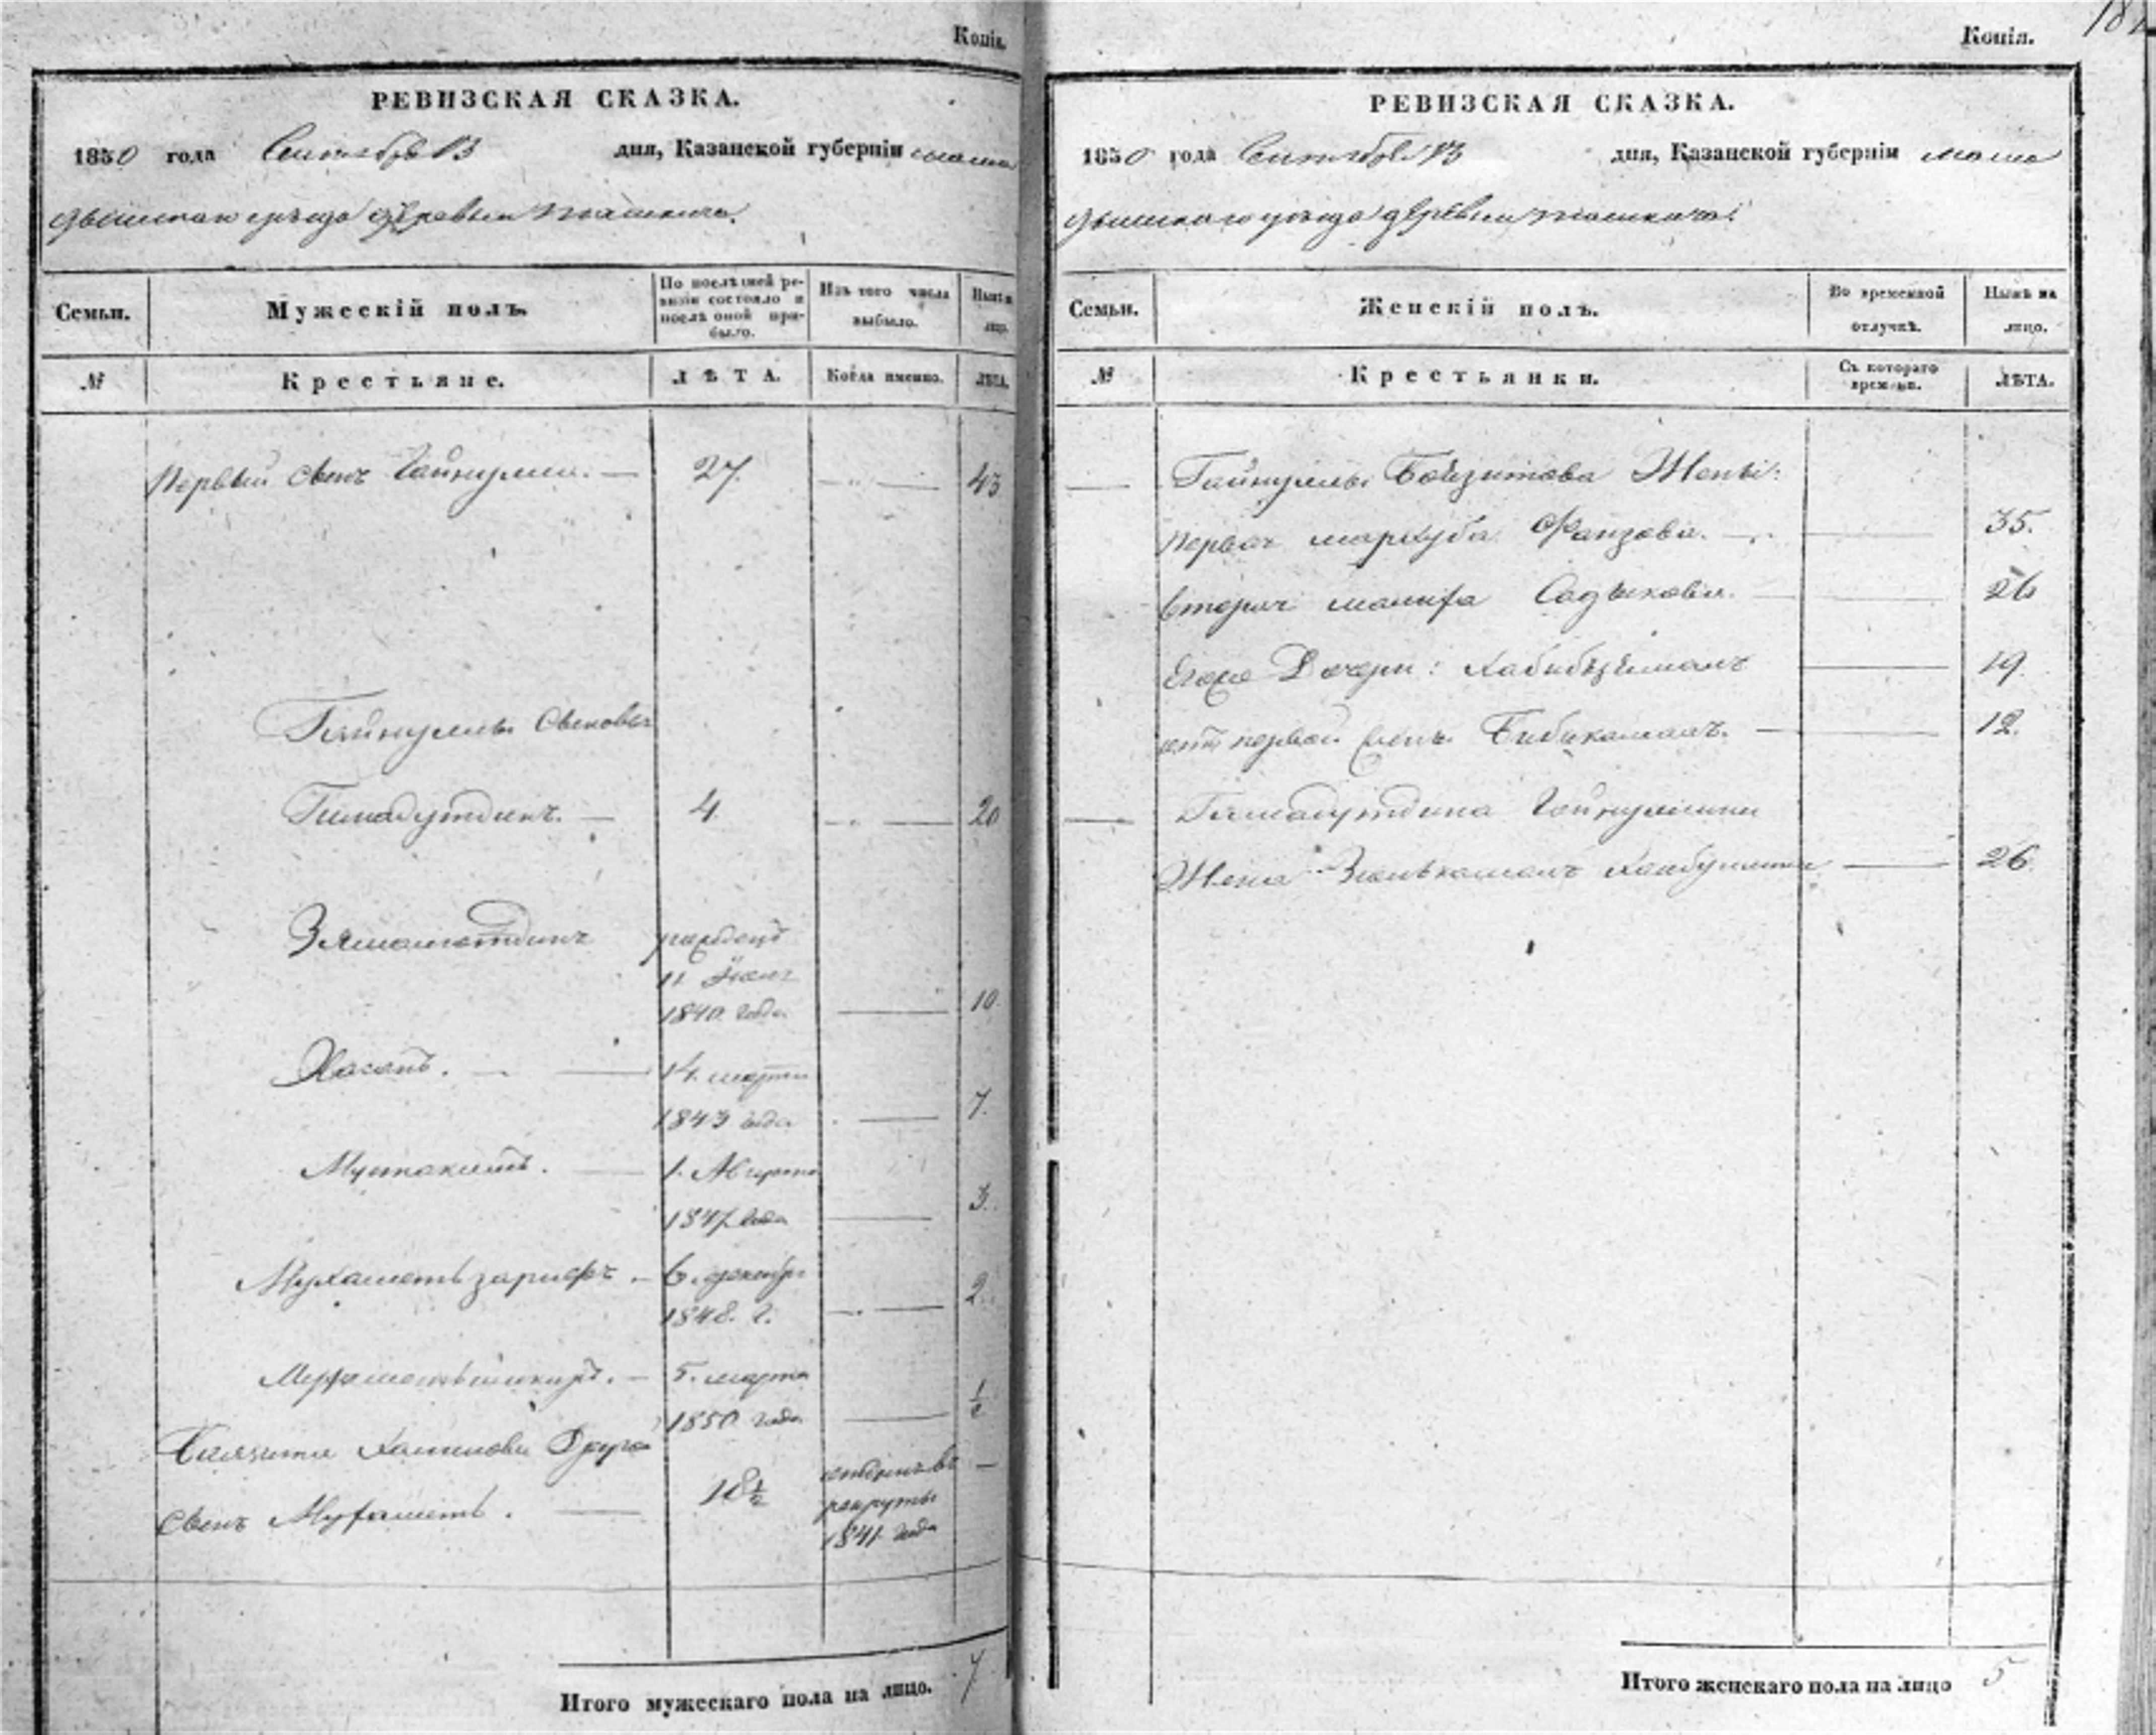 Копія.
РЕВИЗСКАЯ СКАЗКА.
1850 года Сентября 13 дня, Казанской губерніи мама
дышскаго уѣзда деревни Ташкича.
Семьи.
Мужескій полъ.
По послѣдней ре-
визіи состояло и
послѣ оной при-
было.
Изъ того числа
выбыло.
Нынѣ на
лицо.
№
Крестьяне.
ЛѢТА.
Когда именно.
ЛѢТА.
Первый сынъ Гайнулла. — 27. — 43
Гайнуллы Сыновья
Гимадутдинъ. — 4. — 20
Зямалетдинъ рожденъ
11 Іюля
1840. года — 10.
Хасанъ. — 14. марта
1843 года — 7.
Мустакимъ. — 1. Августа
1847 года — 3.
Мухаметьзарифъ. — 6. декабря
1848. г. — 2.
5. марта
1850 года — 1/2
Баязита Другой
сынъ Мухаметь. — 18 1/2 отданъ въ —
рекруты
1841 года
Итого мужескаго пола на лицо. 7
Копія.
РЕВИЗСКАЯ СКАЗКА.
1850 года Сентября 13 дня, Казанской губерніи мама
дышскаго уѣзда деревни Ташкича.
Семьи.
Женскій полъ.
Во временной
отлучкѣ.
Нынѣ на
лицо.
№
Крестьянки.
Съ котораго
времени.
ЛѢТА.
— Гайнуллы Баязитова Жены:
первая Маркуба Фаизова. — 35.
вторая Садыкова. — 26
Его Дочери: — 19.
отъ первой жены Бибикамалъ. — 12.
— Гимадутдина Гайнуллина
Жена — 26.
Итого женскаго пола на лицо 5